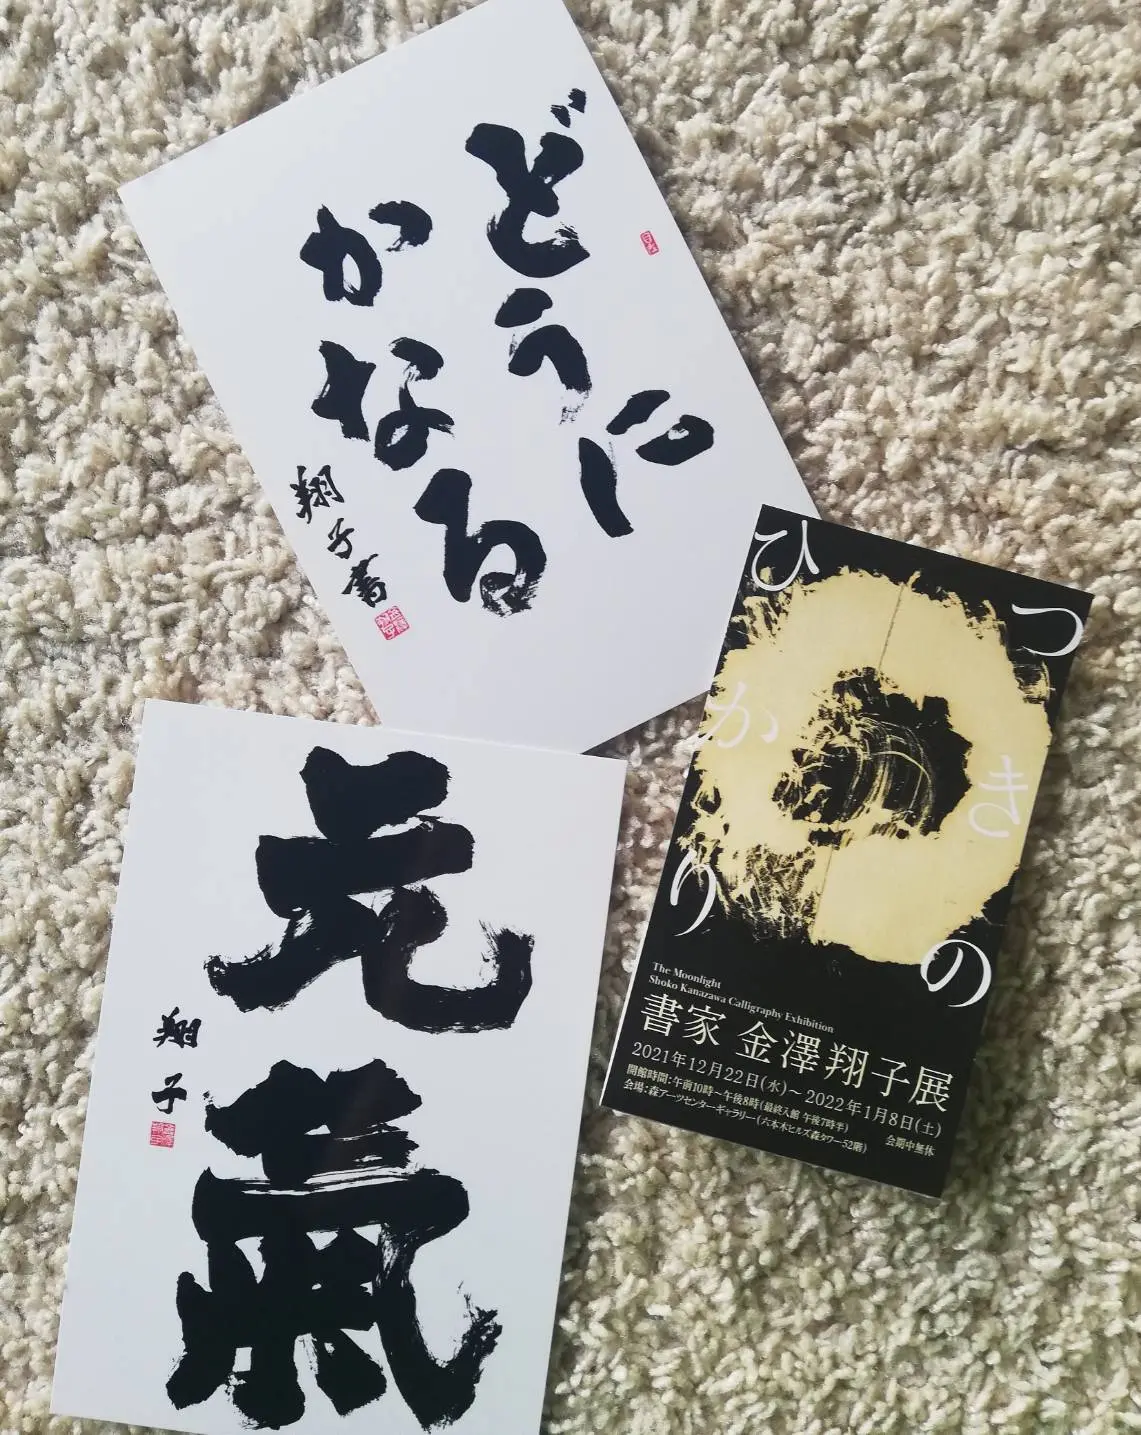 どうに
かなる
翔子書
元氣
翔子
つきの
ひかり
The Moonlight
Shoko Kanazawa Calligraphy Exhibition
書家 金澤翔子展
2021年12月22日(水)～2022年1月8日(土)
開館時間：午前10時～午後8時(最終入館 午後7時半) 会期中無休
会場：森アーツセンターギャラリー(六本木ヒルズ森タワー52階)